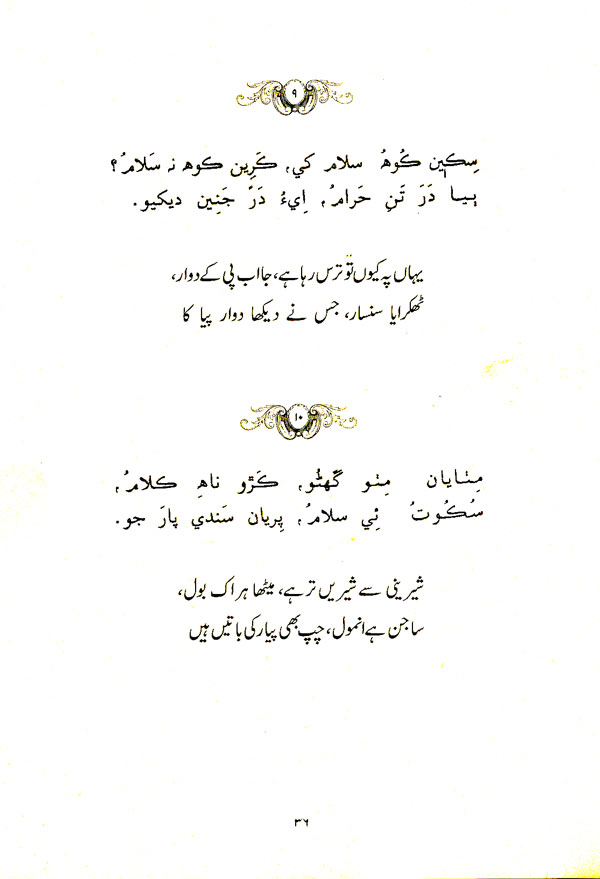 ۹
سِڪين ڪُوهُ سلام کي، ڪَرِين ڪوھ نہ سَلامُ؟
ٻِيا دَرَ تَنِ حَرامُ، اِيءُ دَرُ جَنِين ديکيو.
یہاں پہ کیوں تو ترس رہا ہے، جا اب پی کے دوار،
ٹھکرایا سنسار، جس نے دیکھا دوار پیا کا
۱۰
مِٺايان مِٺو گهڻُو، ڪَڙو ناهِ ڪلامُ،
سُڪُوتُ ئِي سلامُ، پِريان سَندي پارَ جو.
شیرینی سے شیریں تر ہے، میٹھا ہر اک بول،
ساجن ہے انمول، چپ بھی پیار کی باتیں ہیں
۳۶